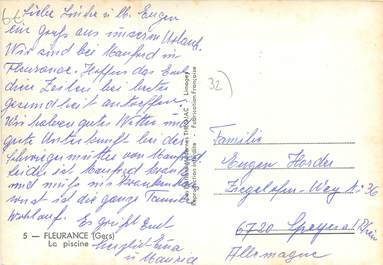 6€
Liebe Lindre u. lb. Eugen
ein Gruß aus unserem Urlaub.
Wir sind bei Manfred in
Fleurance. Hoffen das Euch
diese Zeilen bei bester
Gesundheit antreffen.
Wir haben gutes Wetter und
gute Unterkunft bei der
Schwiegermutter von Manfred
leider ist Manfred krank
und muß ins Krankenhaus
sonst ist die ganze Familie
wohlauf. Es grüßt Euch
u Maurice
5 — FLEURANCE (Gers)
La piscine
THOUAC - Limoges
Reproduction interdite - Fabrication Française
32
Familie
Eugen Horder
Ziegelofen-Weg 36
6720 Speyer/Rhein
Allemagne